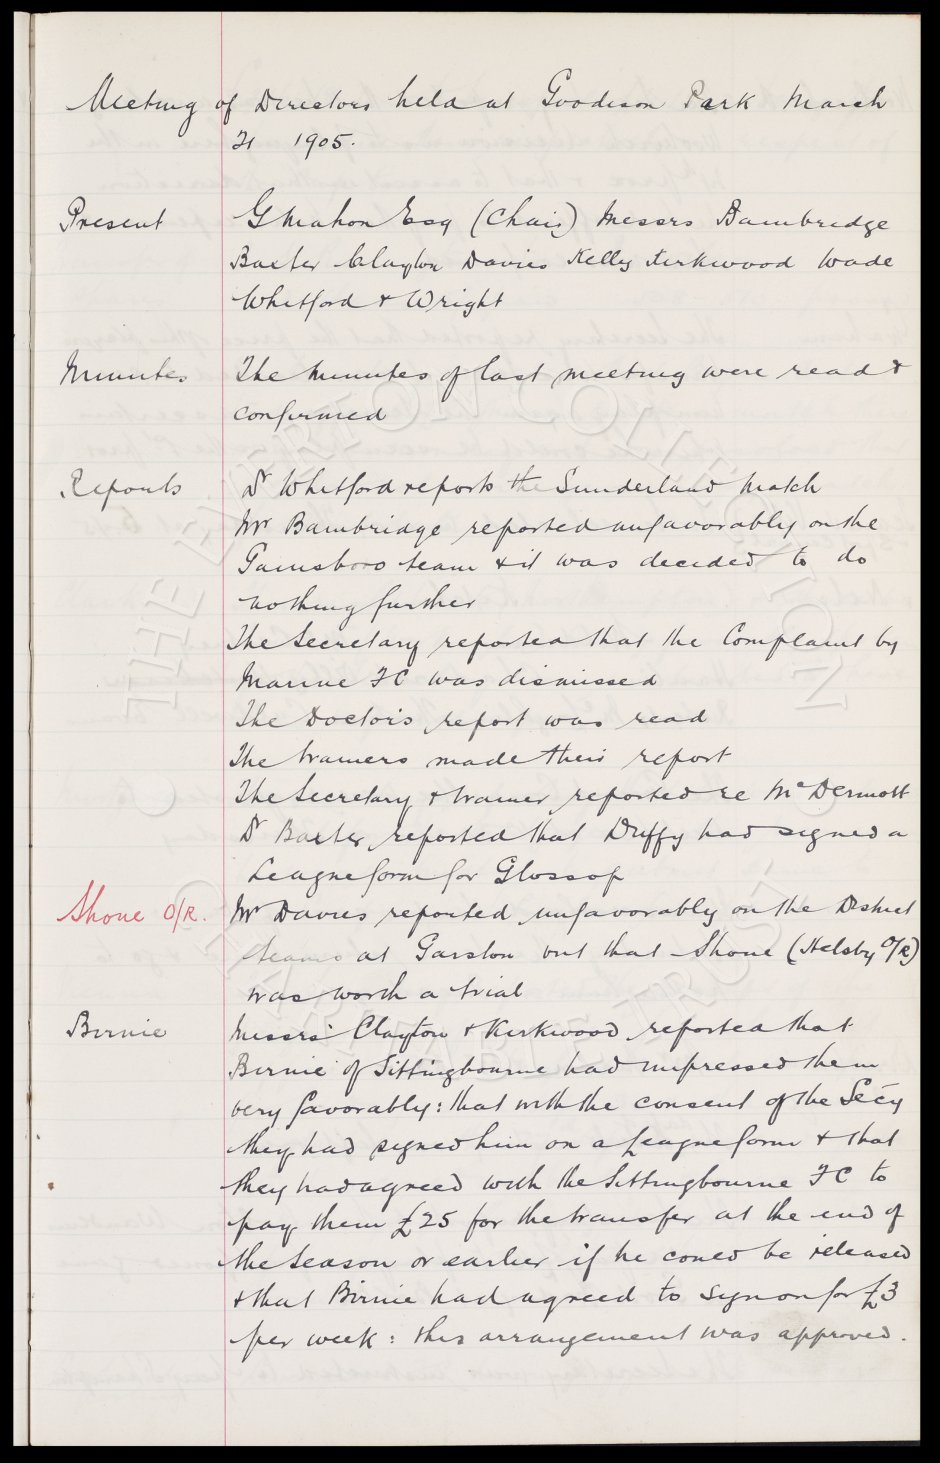 Meeting of Directors held at Goodison Park March
21 1905.
Present G Mahon Esq (Chair) Messrs Bambridge
Baxter Clayton Davies Kelly Kirkwood Wade
Whitford & Wright
Minutes The Minutes of last meeting were read &
confirmed
Reports Dr Whitford reports the Sunderland Match
Mr Bambridge reported unfavorably on the
Gainsboro team & it was decided to do
nothing further
The Secretary reported that the Complaint by
Marine FC was dismissed
The Doctor's report was read
The trainers made their report
The Secretary & trainer reported re McDermott
Dr Baxter reported that Duffy had signed a
League form for Glossop
Shone O/R. Mr Davies reported unfavorably on the District
teams at Garston but that Shone (Helsby O/R)
was worth a trial
Birnie Messrs Clayton & Kirkwood reported that
Birnie of Sittingbourne had impressed them
very favorably: that with the consent of the Secy
they had signed him on a League form & that
they had agreed with the Sittingbourne FC to
pay them £25 for the transfer at the end of
the Season or earlier if he coued be released
& that Birnie had agreed to sign on for £3
per week: this arrangement was approved.
THE EVERTON COLLECTION
CHARITABLE TRUST